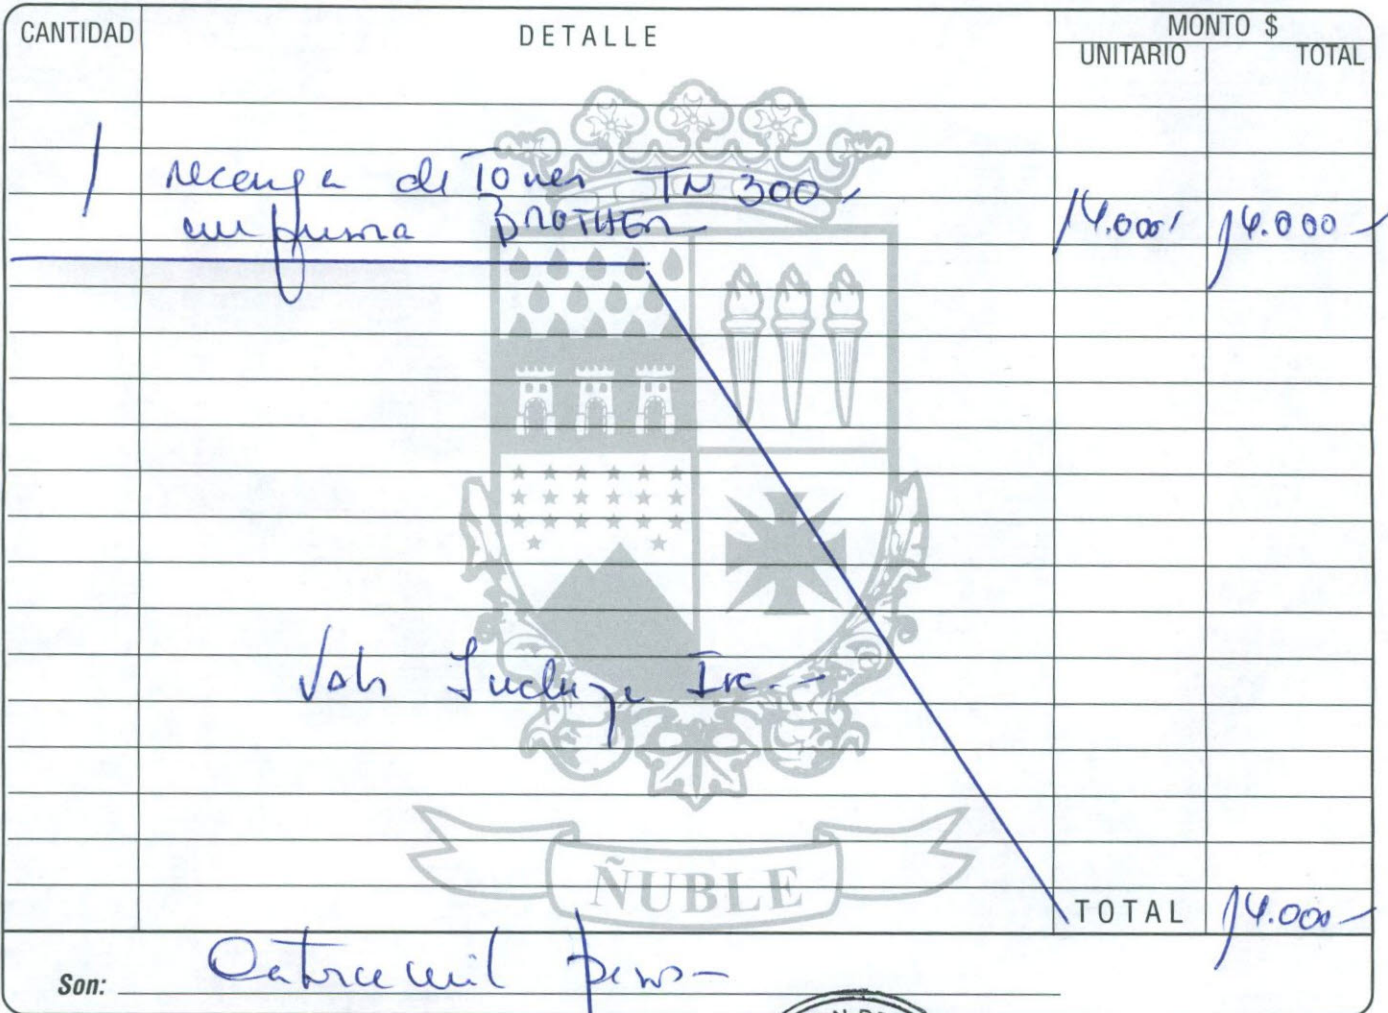 CANTIDAD DETALLE MONTO $
UNITARIO TOTAL
1 recarga de Toner TN 300
impresora BROTHER 14.000 14.000
Valor Incluye Iva.-
ÑUBLE
TOTAL 14.000
Son: Catorce mil pesos